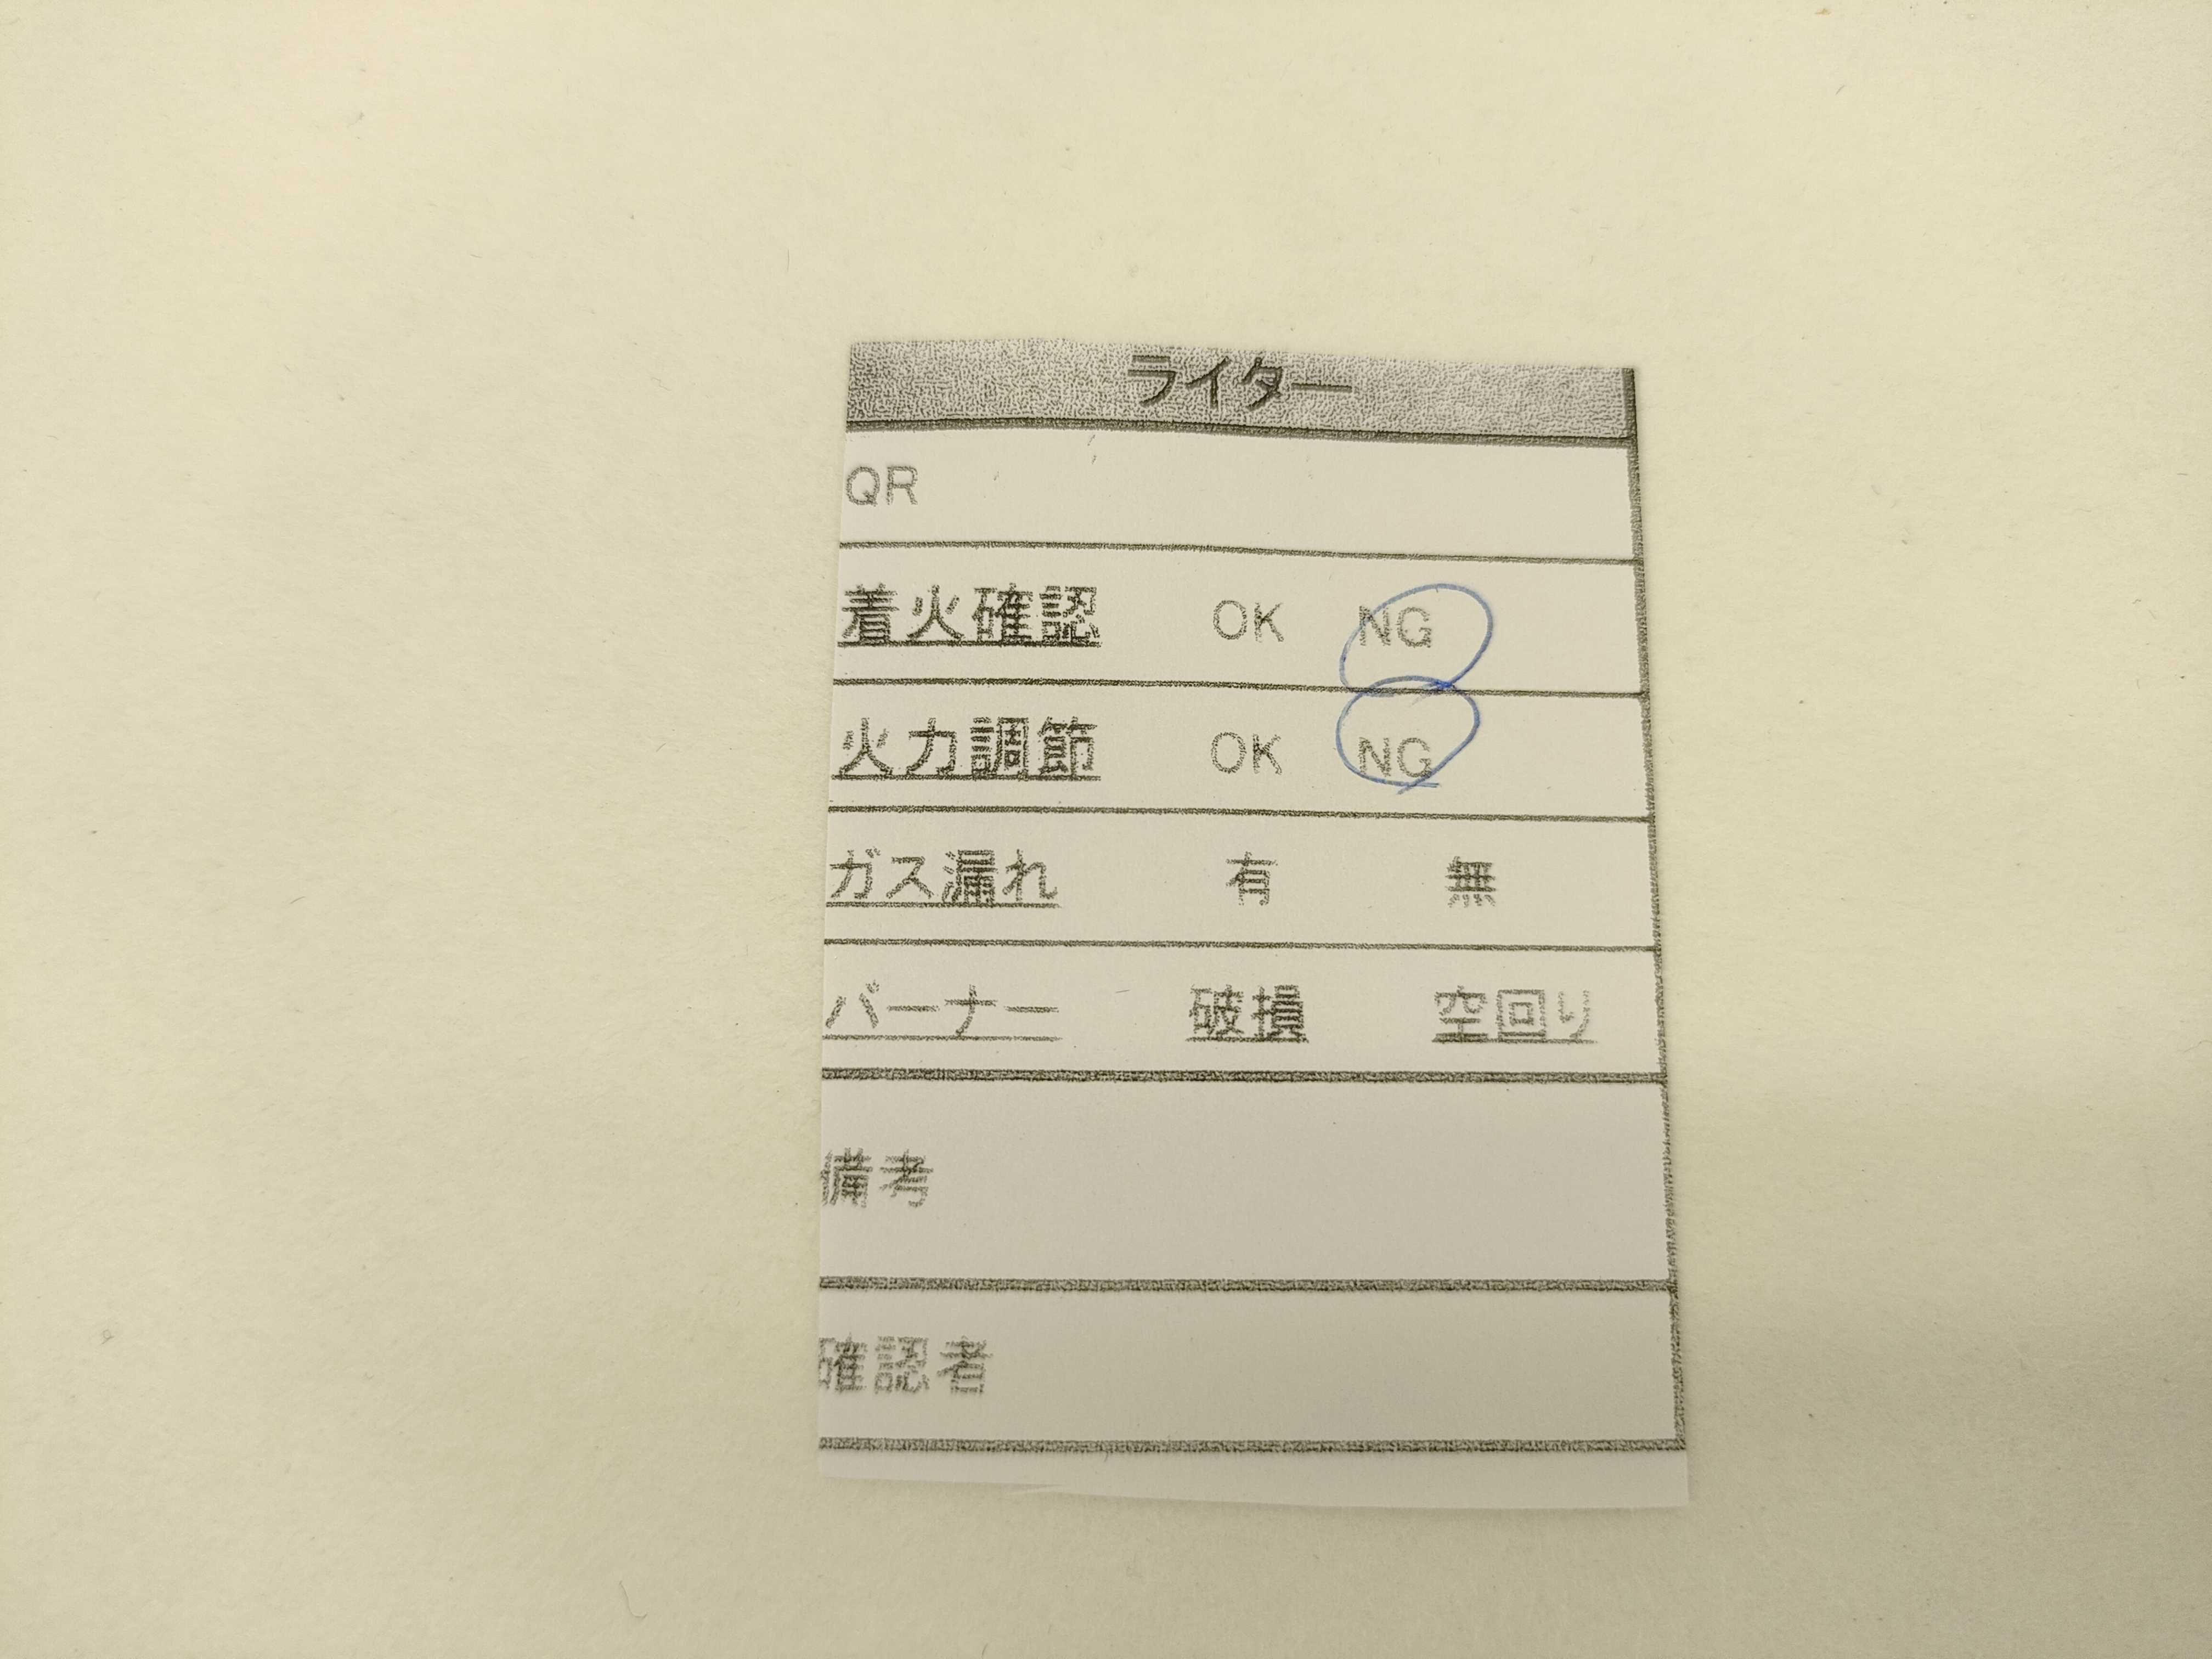 ライター
QR
着火確認 OK NG
火力調節 OK NG
ガス漏れ 有 無
バーナー 破損 空回り
備考
確認者